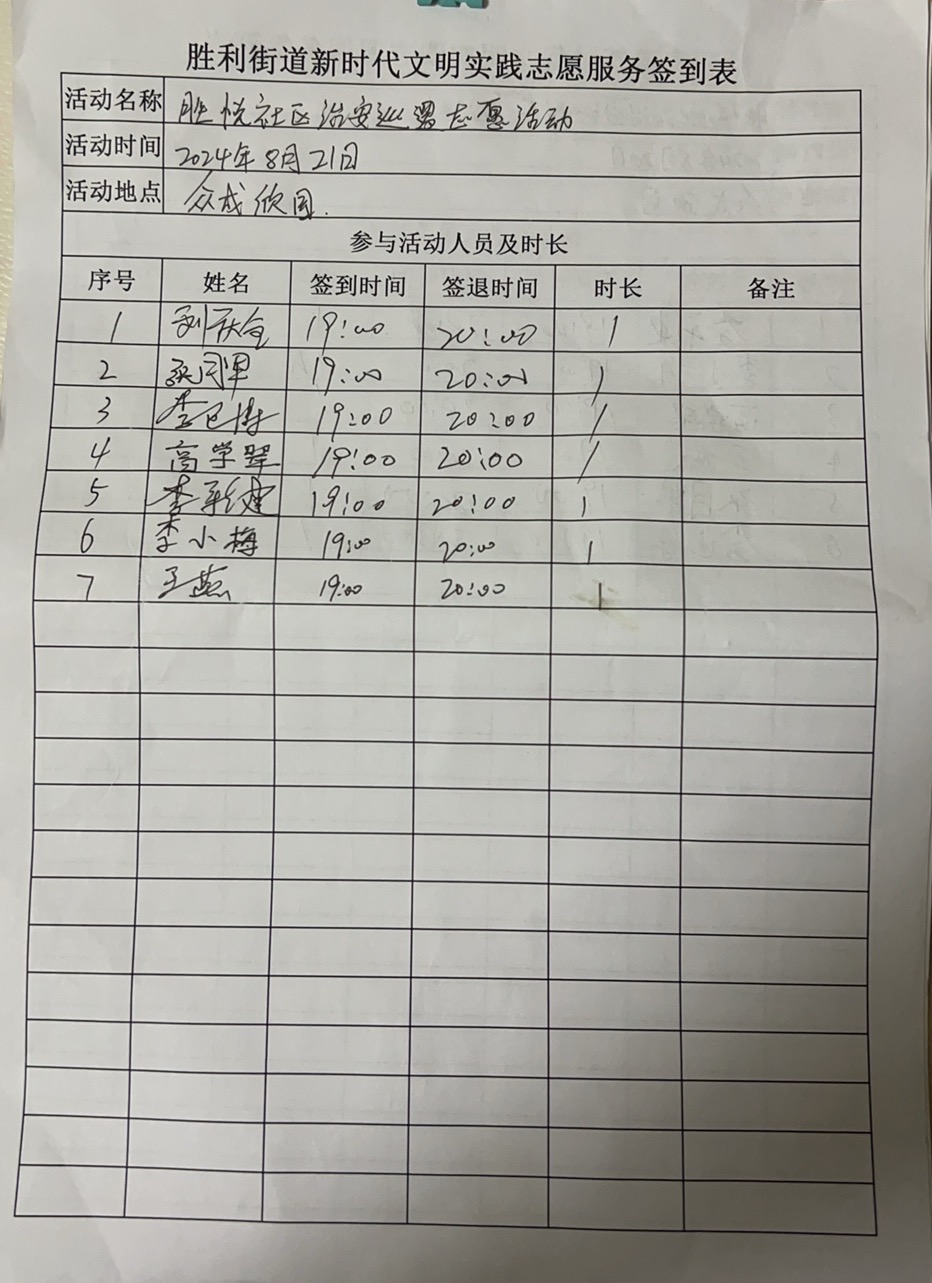 胜利街道新时代文明实践志愿服务签到表
活动名称 胜悦社区治安巡逻志愿活动
活动时间 2024年8月21日
活动地点 众成欣园.
参与活动人员及时长
序号 姓名 签到时间 签退时间 时长 备注
1 19:00 20:00 1
2 19:00 20:00 1
3 19:00 20:00 1
4 高学翠 19:00 20:00 1
5 19:00 20:00 1
6 李小梅 19:00 20:00 1
7 王燕 19:00 20:00 1